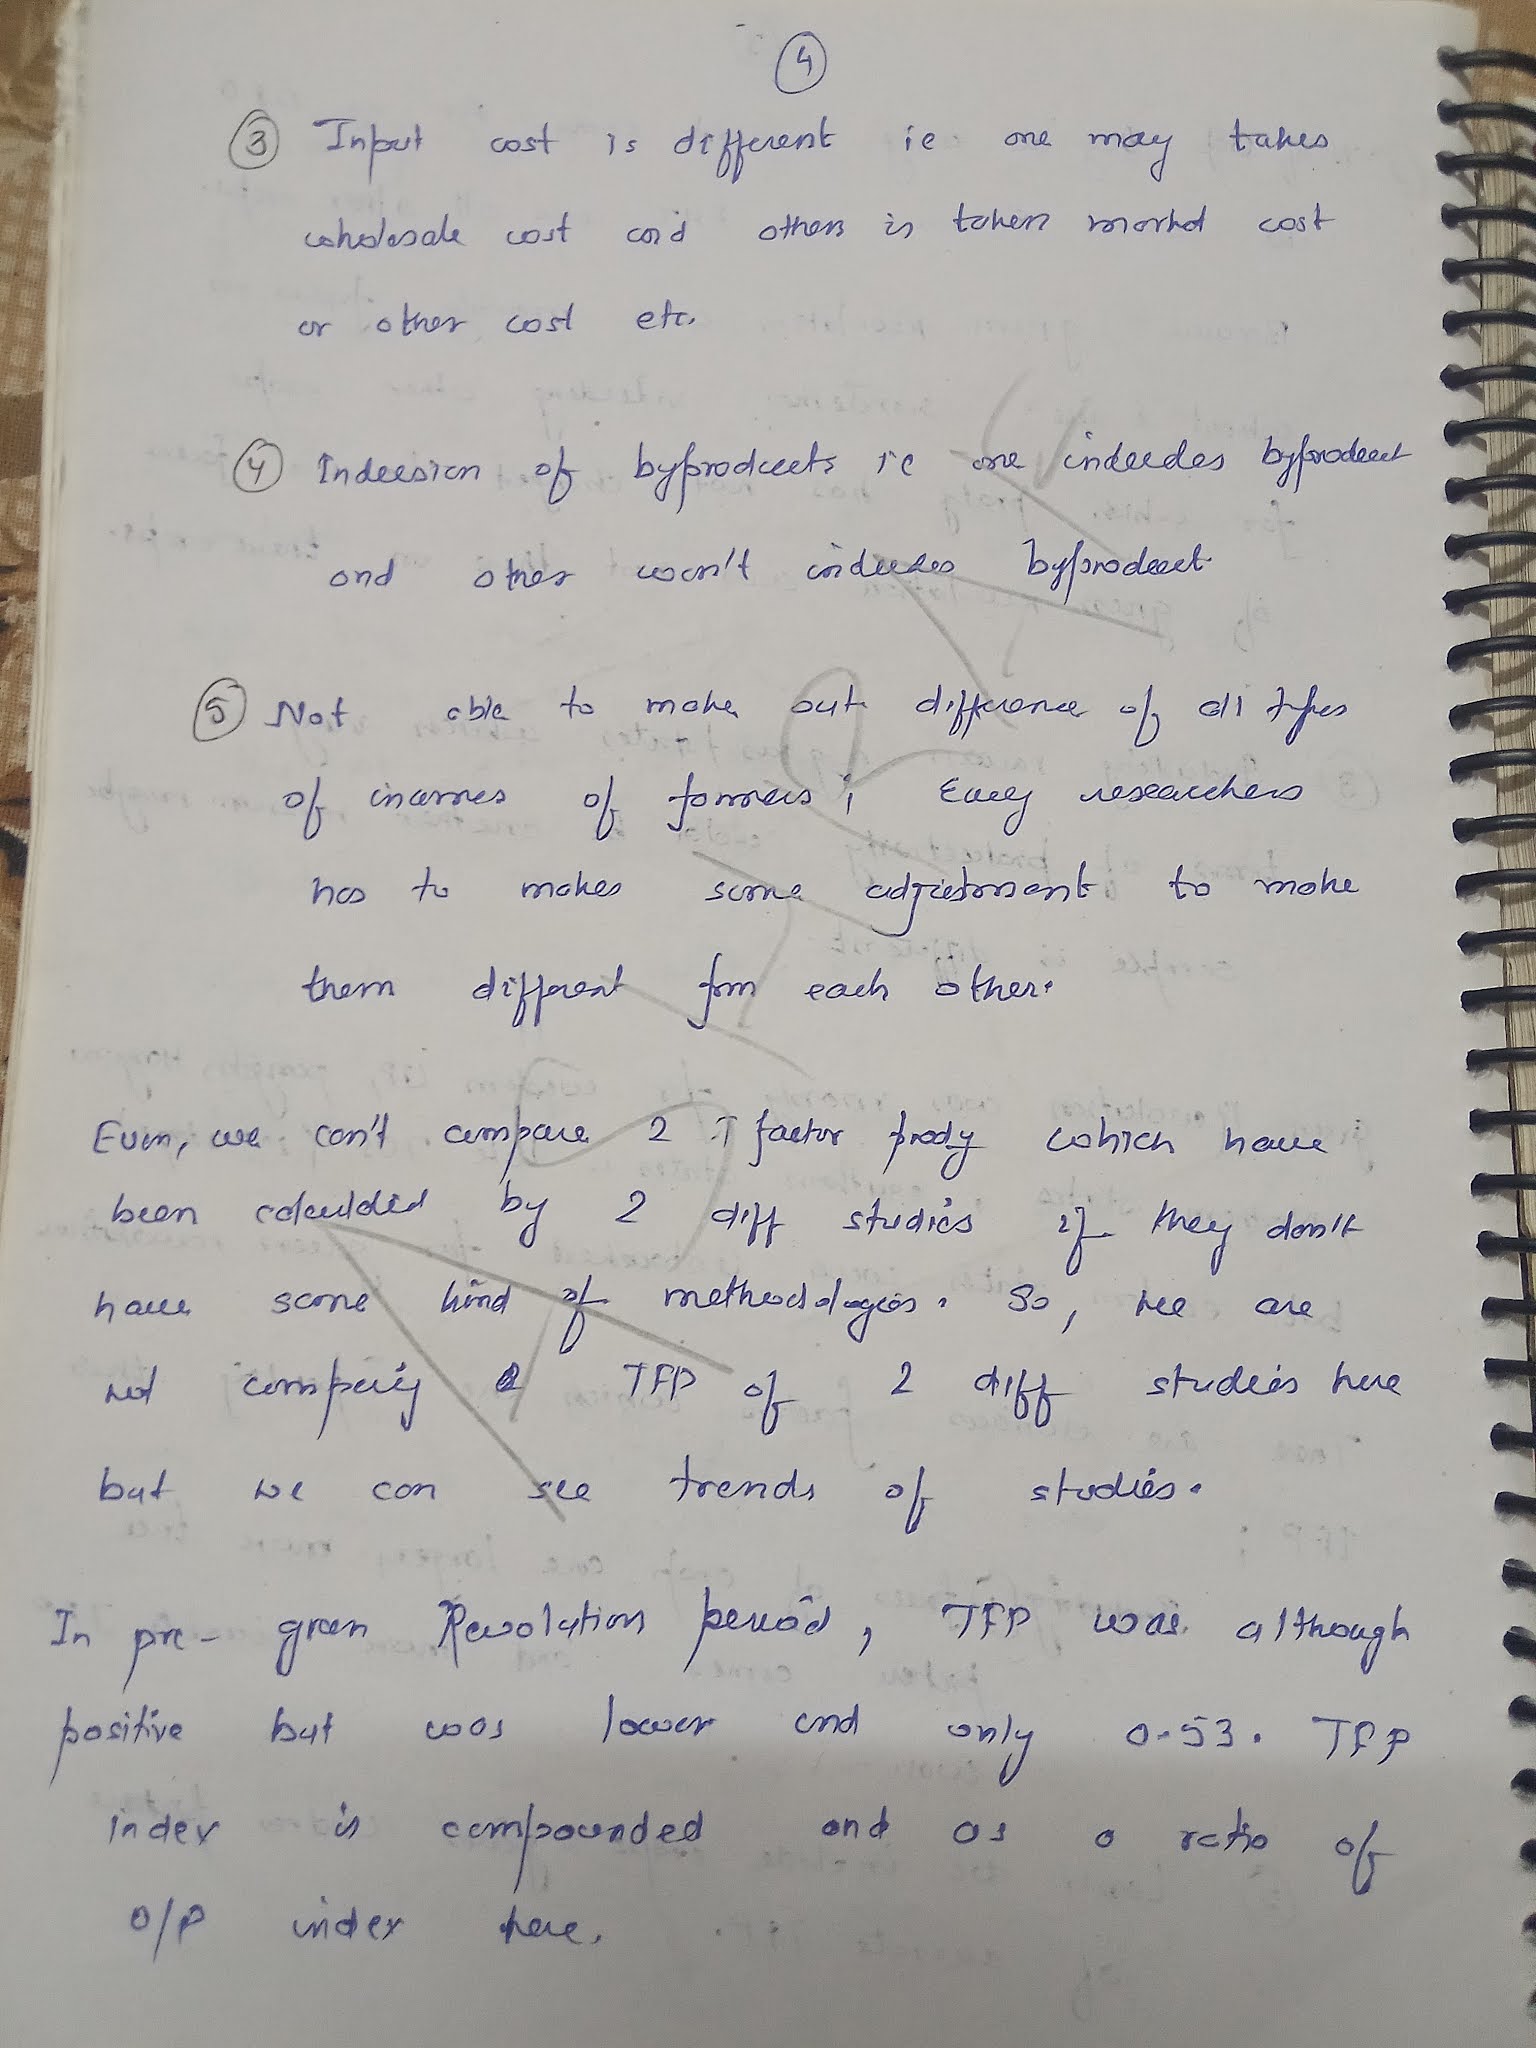 4
③ Input cost is different ie one may takes
wholesale cost and others is taken market cost
or other cost etc.
④ Inclusion of byproducts ie one includes byproduct
and other won't includes byproduct
⑤ Not able to make out difference of all types
of incomes of farmers; Every researchers
has to makes some adjustment to make
them different frm each other.
Even, we can't compare 2 T factor prody which have
been calculated by 2 diff studies if they don't
have same kind of methodologies. So, we are
not comparing 2 TFP of 2 diff studies here
but we can see trends of studies.
In pre-green Revolution period, TFP was although
positive but was lower and only 0.53. TFP
index is compounded and as a ratio of
O/P index here.